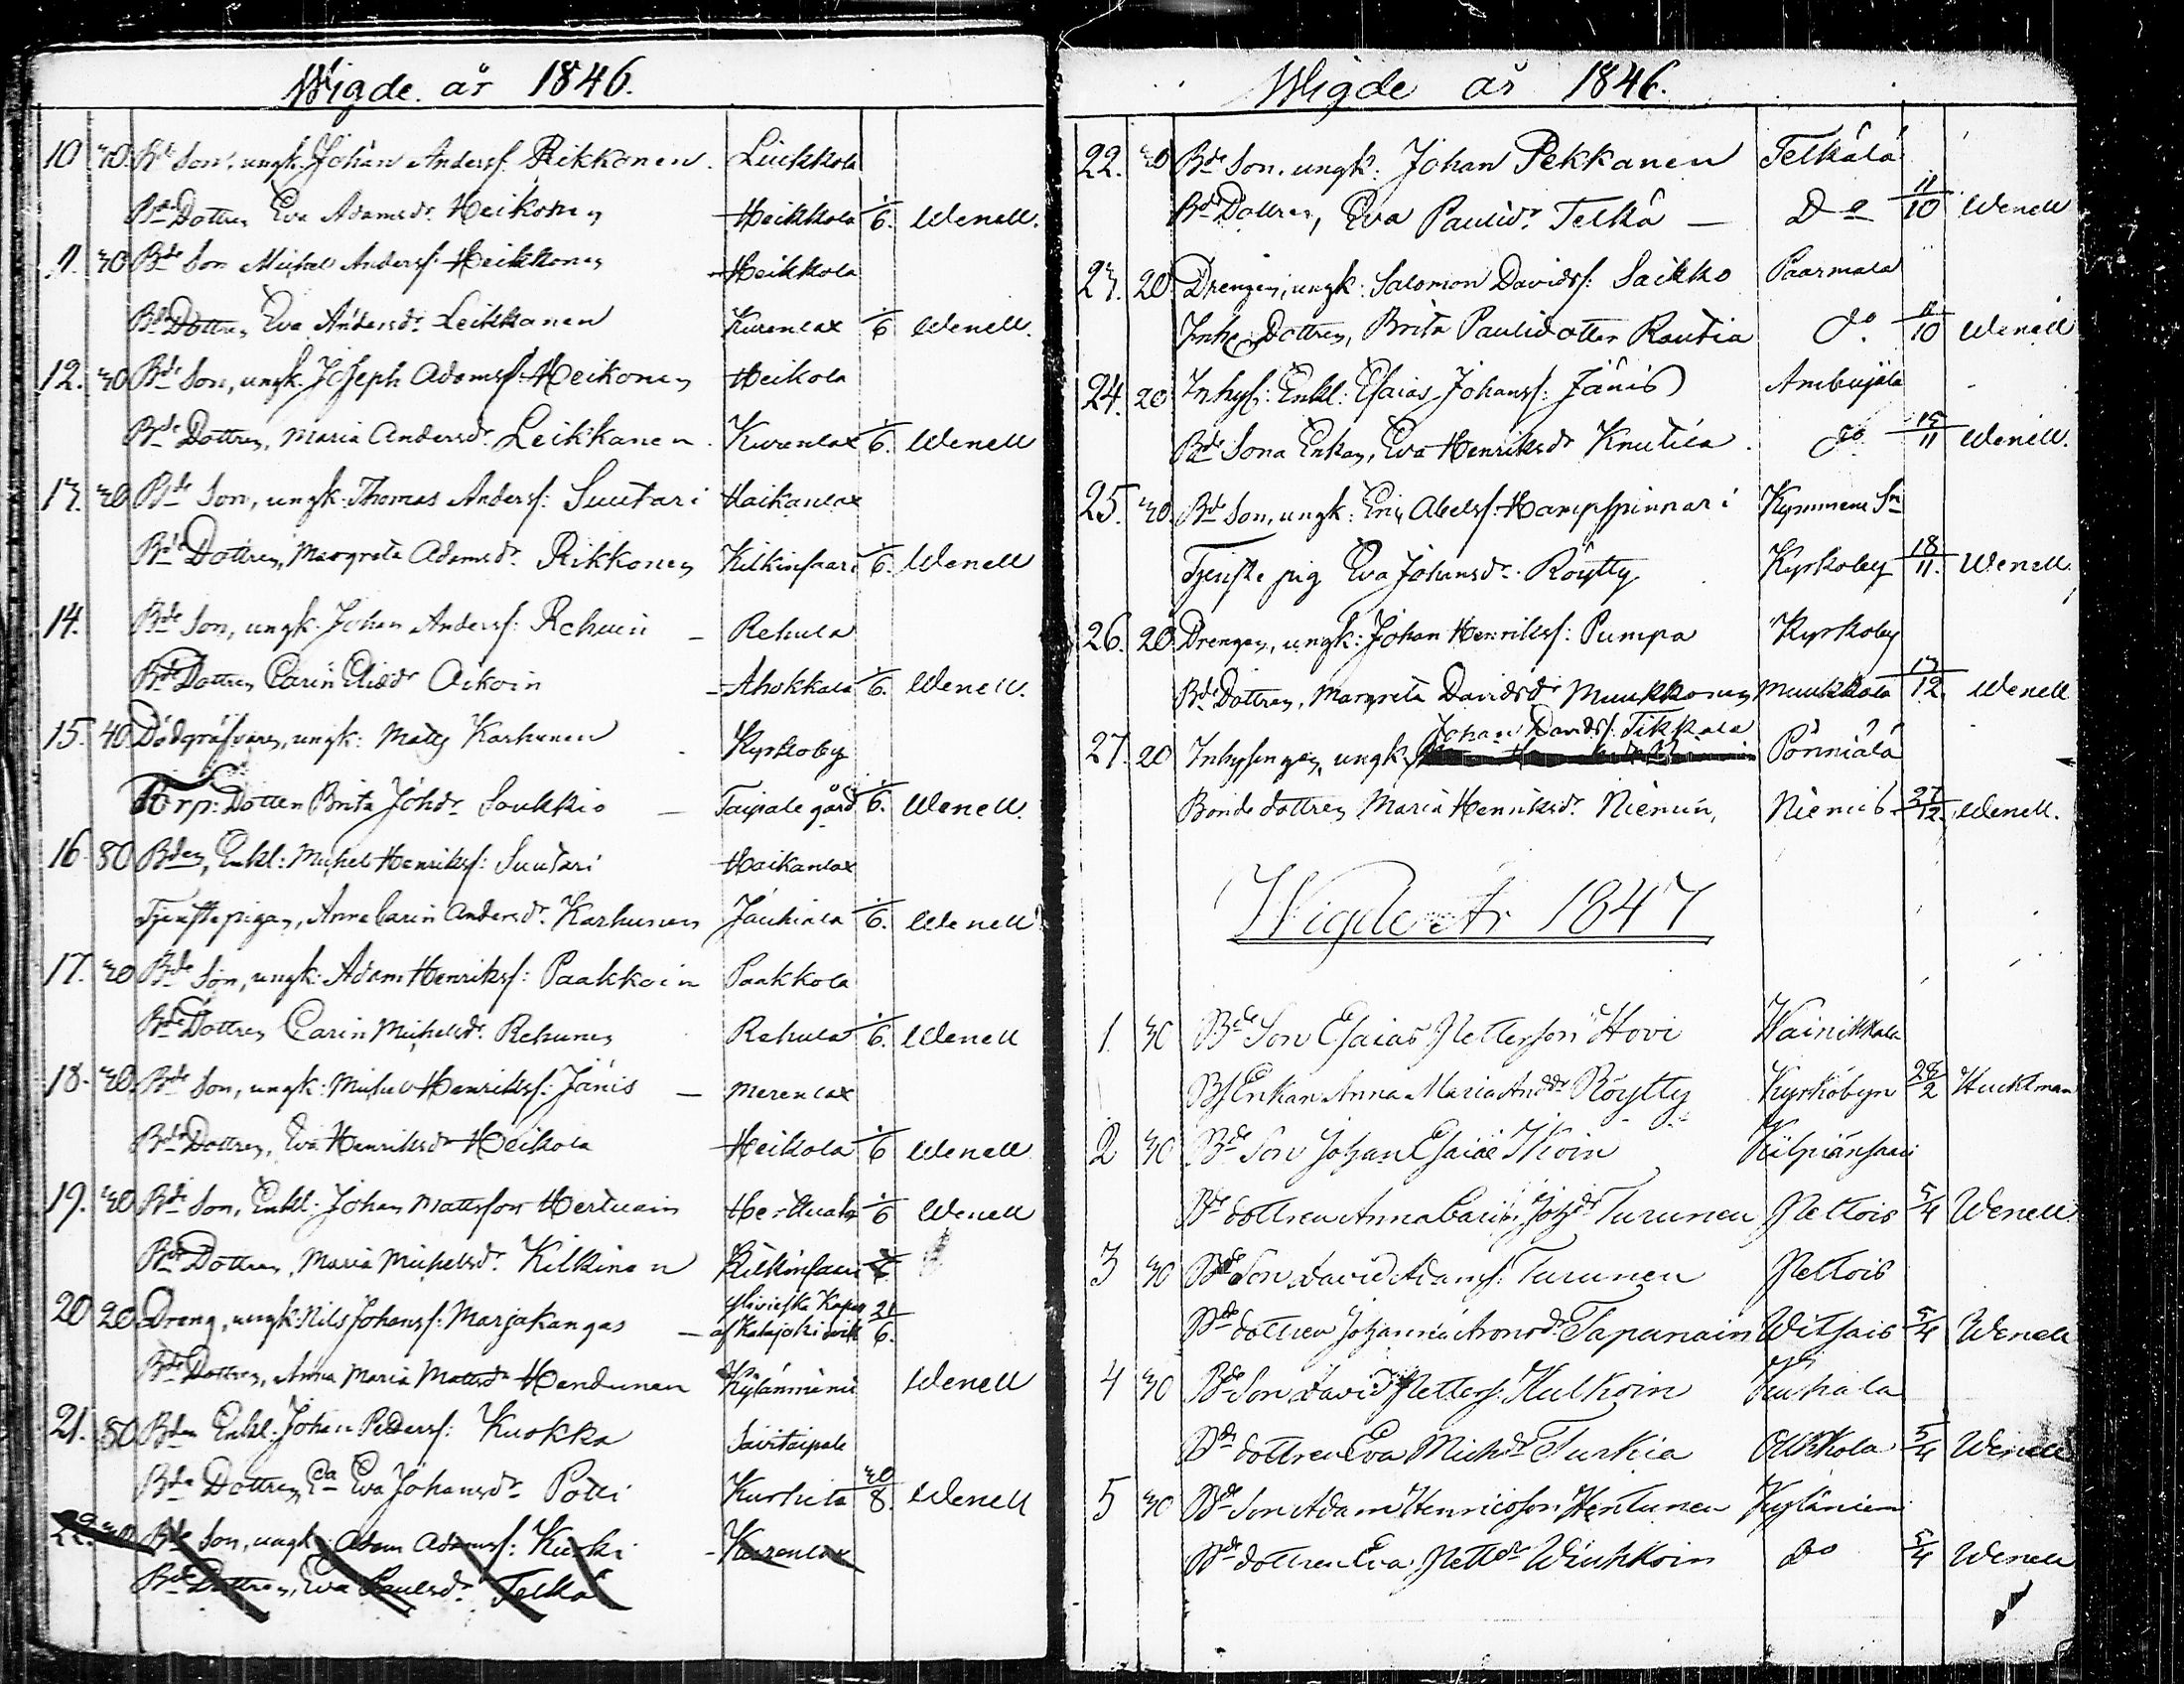 Wigde år 1846.
10 30 Bde Son, ungk: Johan Andersf. Rikkonen. Liukkola
Bde Dottren Eva Adamsdr. Heikonen Heikkola 1/6 Wenell.
11. 30 Bde Son Michel Andersf: Heikkonen Heikkola
Bde Dottren Eva Andersdr. Leikkanen Kurenlax 1/6 Wenell.
12. 30 Bde Son, ungk. Joseph Adamsf. Heikonen Heikola
Bde Dottren, Maria Andersdr. Leikkanen. Kurenlax 1/6. Wenell
13. 30 Bde Son, ungk: Thomas Andersf: Suutari Haikanlax
Bde Dottren, Margreta Adamsdr. Rikkonen Kilkinsaari 1/6. Wenell
14. Bde Son, ungk. Johan Andersf: Rehuin – Rehula
Bde Dottren Carin Eliedr Aikoin – Ahokkala 1/6. Wenell.
15. 40 Dödgräfvaren, ungk: Matts Karhunen Kyrkoby
Torp: Dotten Brita Johdr. Soukkio – Taipale gård 1/6. Wenell.
16. 80 Bden, Enkl: Michel Henriksf: Suutari Haikanlax
Tjenstepigan, Anna Carin Andersdr. Karhunen Jauhiala 1/6. Wenell
17. 30 Bde Son, ungk: Adam Henriksf: Paakkoin Paakkola
Bde Dottren Carin Michelsdr. Rehunen Rehula 1/6. Wenell
18. 30. Bde Son, ungk: Michel Henriksf: Jänis – Merenlax
Bde Dottren, Eva Henriksdr Heikola Heikola 1/6 Wenell
19. 30 Bde Son, Enkl: Johan Mattsson Hertuain Herttuala 1/6 Wenell
Bde Dottren, Maria Michelsdr. Kilkinen Kilkinsaari
20 20. Dreng, ungk: Nils Johansf: Marjakangas – Ylivieska Kapell af Kalajoki 21/6.
Bde Dottren, Anna Maria Mattsdr Handunen Kylänniemi Wenell
21. 80 Bden Enkl: Johan Pedersf: Kuokka Savitaipale
Bde Dottren, Eva Johansdr. Pötti Kurhila 30/8. Wenell
22. 30 Bde Son, ungk: Adam Adamsf: Kurki – Kurenlax
Bde Dottren, Eva Paulsdr. Telkä
Wigde år 1846.
22. 30 Bde Son, ungk: Johan Pekkanen Telkälä
Bde Dottren, Eva Paulidr. Telkä – Do 11/10 Wenell
23. 20. Drengen, ungk: Salomon Davidsf: Saikko Paarmala
Inhs Dottren, Brita Paulidotter Rautia do. 11/10 Wenell
24. 20 Inhysf: Enkl: Esaias Johansf: Jänis Ambujala
Bde Sona Enkan, Eva Henriksdr Knutila. do. 15/11 Wenell.
25. 30. Bde Son, ungk: Eric Abelsf: Hampspinnari Kymmene Sn
Tjenste pig Eva Johansdr. Röytty Kyrkoby 18/11. Wenell.
26. 20. Drengen, ungk: Johan Henriksf: Pumpa Kyrkoby
Bde Dottren, Margreta Davidsdr Muukkonen Muukkola 13/12. Wenell
Johan Davidsf: Tikkala
27. 20 Inhysingen, ungk: Pönniälä
Bonde dottren Maria Henriksdr. Niemin, Niemis 27/12. Wenell.
Wigde År 1847
1. 30 Bde Son Esaias Petterson Hovi Wainikkala
Bs Enkan Anna Maria Andr Röytty Kyrkobyn 28/2 Hucktman
2 30 Bde Son Johan Esaiæ Ikoin Kilpiänsaari
Bde dottren Anna Carin Johdr Turunen Pettois 5/4 Wenell.
3 30 Bde Son David Adamf: Turunen Pettois
Bde dottren Johanna Aronsdr. Tapanain Witsais 5/4 Wenell
4 30 Bde Son David Petters: Hulkoin Kuhala
Bde dottren Eva Michdr Turkia Ollikkola 5/4 Wenell
5 30 Bde Son Adam Henricsson Hentunen Kyläniem
Bde dottren Eva Pettdr Wiuhkoin Do 5/4 Wenell